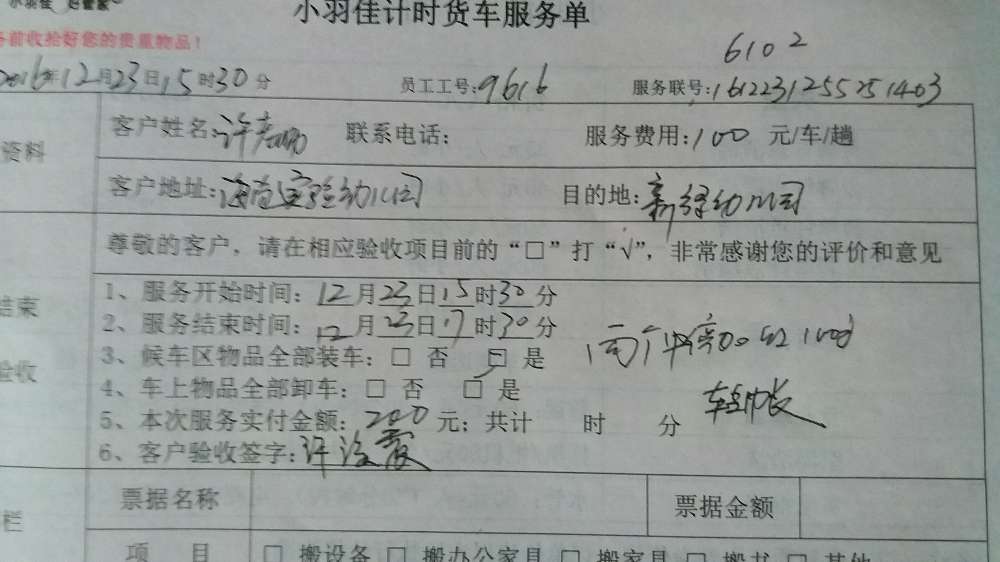 小羽佳
小羽佳计时货车服务单
前收拾好您的贵重物品！
6102
2016年12月23日15时30分 员工工号:9616 服务联号:1612231255251403
资料
客户姓名:许 联系电话: 服务费用:100 元/车/趟
客户地址:海沧实验幼儿园 目的地:新绿幼儿园
尊敬的客户，请在相应验收项目前的“□”打“√”，非常感谢您的评价和意见
结束
验收
1、服务开始时间：12月23日15时30分
2、服务结束时间：12月23日17时30分
3、候车区物品全部装车：□ 否 □ 是
4、车上物品全部卸车：□ 否 □ 是
5、本次服务实付金额：200元；共计 时 分
6、客户验收签字:许
栏
票据名称 票据金额
项 目 □ 搬设备 □ 搬办公家具 □ 搬家具 □ 搬书 □ 其他